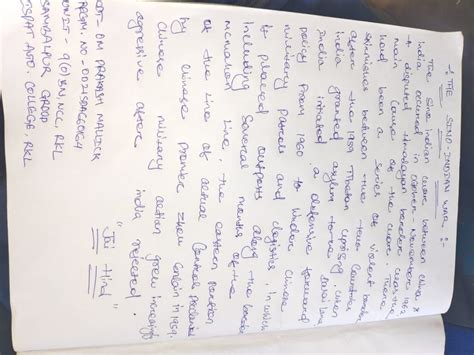 :- THE SINO-INDIAN WAR :-
The Sino indian war between china &
india occurred in October - November 1962
A disputed Himalayan border was the
main cause of the war. There
had been a series of violent border
skirmishes between the two countries
after the 1959 Tibetan uprising when
india granted asylum to the Dalai Lama
India initiated a defensive forward
policy from 1960 to hinder Chinese
military patrols and logistics, in which
it placed outposts along the border
including several north of the
McMahon Line, the eastern portion
of the Line of actual Control Proclaimed
by chinese Premier Zhou Enlai in 1959.
Chinese military action grew increasingly
aggressive after india rejected
"Jai Hind"
CDT- OM PRAKASH MALLICK
REGM. NO-
UNIT - 9(O) BN, NCC, RKL
SAMBALPUR GROUP
ISPAT AUTO. COLLEGE, RKL